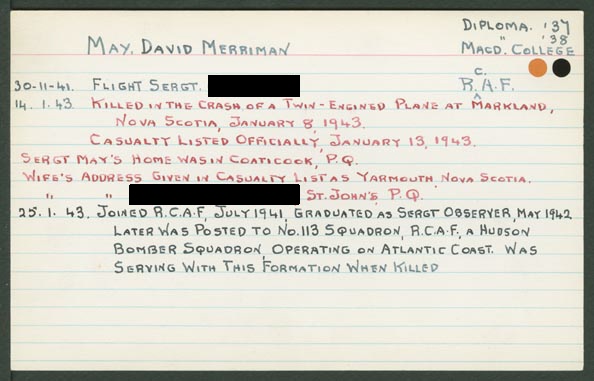 DIPLOMA. '37
" '38
MAY, DAVID MERRIMAN MACD. COLLEGE
30-11-41. FLIGHT SERGT. R.C.A.F.
14. 1. 43. KILLED IN THE CRASH OF A TWIN-ENGINED PLANE AT MARKLAND,
NOVA SCOTIA, JANUARY 8, 1943.
CASUALTY LISTED OFFICIALLY, JANUARY 13, 1943.
SERGT MAY'S HOME WAS IN COATICOOK, P.Q.
WIFE'S ADDRESS GIVEN IN CASUALTY LIST AS YARMOUTH, NOVA SCOTIA.
" " ST. JOHN'S, P.Q.
25. 1. 43. JOINED R.C.A.F, JULY 1941, GRADUATED AS SERGT OBSERVER, MAY 1942
LATER WAS POSTED TO NO. 113 SQUADRON, R.C.A.F, A HUDSON
BOMBER SQUADRON, OPERATING ON ATLANTIC COAST. WAS
SERVING WITH THIS FORMATION WHEN KILLED